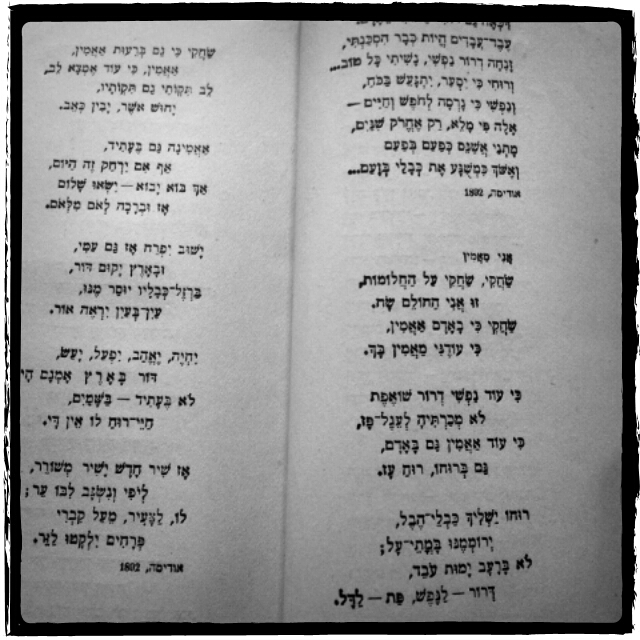 עֶבֶד־עֲבָדִים הֱיוֹת כְּבָר הִסְכַּנְתִּי,
דְרוֹר נַפְשִׁי, נָשִׁיתִי כָּל טוֹב...
וְרוּחִי כִּי יִסְעַר, יִתְגָּעַשׁ בַּכֹּחַ,
וְנַפְשִׁי כִּי גָרְסָה לְחֹפֶשׁ וְחַיִּים —
אָלָה פִּי מָלֵא, רַק אֶחֱרֹק שִׁנַּיִם,
מָתְנַי אֲשַׁנֵּס כְּפַעַם בְּפַעַם
וְאֶשֹּׁךְ כִּמְשֻׁגָּע אֶת כְּבָלַי בְּזָעַם...
אודיסה, 1892
אֲנִי מַאֲמִין
שַׂחֲקִי, שַׂחֲקִי עַל הַחֲלוֹמוֹת,
זוּ אֲנִי הַחוֹלֵם שָׂח.
שַׂחֲקִי כִּי בָאָדָם אַאֲמִין,
כִּי עוֹדֶנִּי מַאֲמִין בָּךְ.
כִּי עוֹד נַפְשִׁי דְרוֹר שׁוֹאֶפֶת
לֹא מְכַרְתִּיהָ לְעֵגֶל־פָּז,
כִּי עוֹד אַאֲמִין גַּם בָּאָדָם,
גַּם בְּרוּחוֹ, רוּחַ עָז.
רוּחוֹ יַשְׁלִיךְ כַּבְלֵי־הֶבֶל,
יְרוֹמְמֶנּוּ בָּמֳתֵי־עָל;
לֹא בָּרָעָב יָמוּת עֹבֵד,
דְּרוֹר — לַנֶּפֶשׁ, פַּת — לַדָּל.
שַׂחֲקִי כִּי גַם בְּרֵעוּת אַאֲמִין,
אַאֲמִין, כִּי עוֹד אֶמְצָא לֵב,
לֵב תִּקְוֹתַי גַּם תִּקְוֹתָיו,
יָחוּשׁ אֹשֶׁר, יָבִין כְּאֵב.
אַאֲמִינָה גַּם בֶּעָתִיד,
אַף אִם יִרְחַק זֶה הַיּוֹם,
אַךְ בּוֹא יָבוֹא — יִשְׂאוּ שָׁלוֹם
אָז וּבְרָכָה לְאֹם מִלְאֹם.
יָשׁוּב יִפְרַח אָז גַּם עַמִּי,
וּבָאָרֶץ יָקוּם דּוֹר,
בַּרְזֶל־כְּבָלָיו יוּסַר מֶנּוּ,
עַיִן־בְּעַיִן יִרְאֶה אוֹר.
יִחְיֶה, יֶאֱהַב, יִפְעַל, יָעַשׂ,
דּוֹר בָּאָרֶץ אָמְנָם
לֹא בֶּעָתִיד — בַּשָּׁמַיִם,
חַיֵּי־רוּחַ לוֹ אֵין דָּי.
אָז שִׁיר חָדָשׁ יָשִׁיר מְשׁוֹרֵר,
לְיֹפִי וְנִשְׂגָּב לִבּוֹ עֵר;
לוֹ, לַצָּעִיר, מֵעַל קִבְרִי
פְּרָחִים יִלְקְטוּ לַזֵּר.
אודיסה, 1892